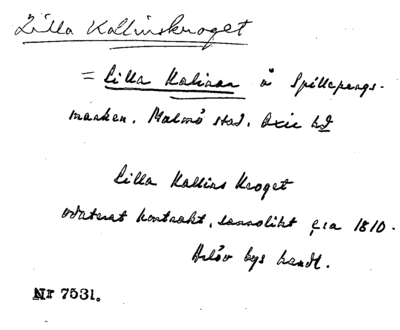 Lilla Kallinskroget
= Lilla Kalinan å Spillepengs-
marken. Malmö stad. Oxie hd
Lilla Kallins Kroget
odaterat kontrakt, sannolikt c:a 1810.
Arlöv bys handl.
Nr 7531.